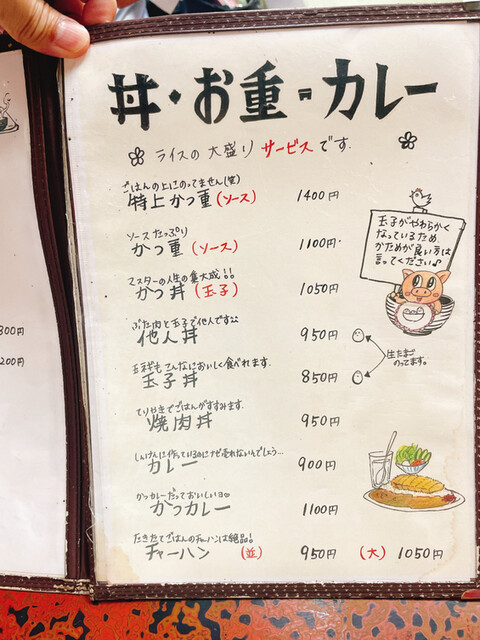 丼・お重・カレー
ライスの大盛りサービスです。
ごはんの上にのってません(笑)
特上かつ重(ソース) 1400円
ソースたっぷり
かつ重(ソース) 1100円
マスターの人生の集大成!!
かつ丼(玉子) 1050円
ぶた肉と玉子で他人です
他人丼 950円
玉ネギもこんなにおいしく食べれます。
玉子丼 850円
生たまご
のってます。
てりやきでごはんがすすみます。
焼肉丼 950円
しんけんに作っているのにナゼ売れないんでしょう...
カレー 900円
かつカレーだっておいしいヨ
かつカレー 1100円
たきたてごはんのチャーハンは絶品!
チャーハン (並) 950円 (大) 1050円
玉子がやわらかく
なっているため
かためが良い方は
言ってください♪
300円
200円